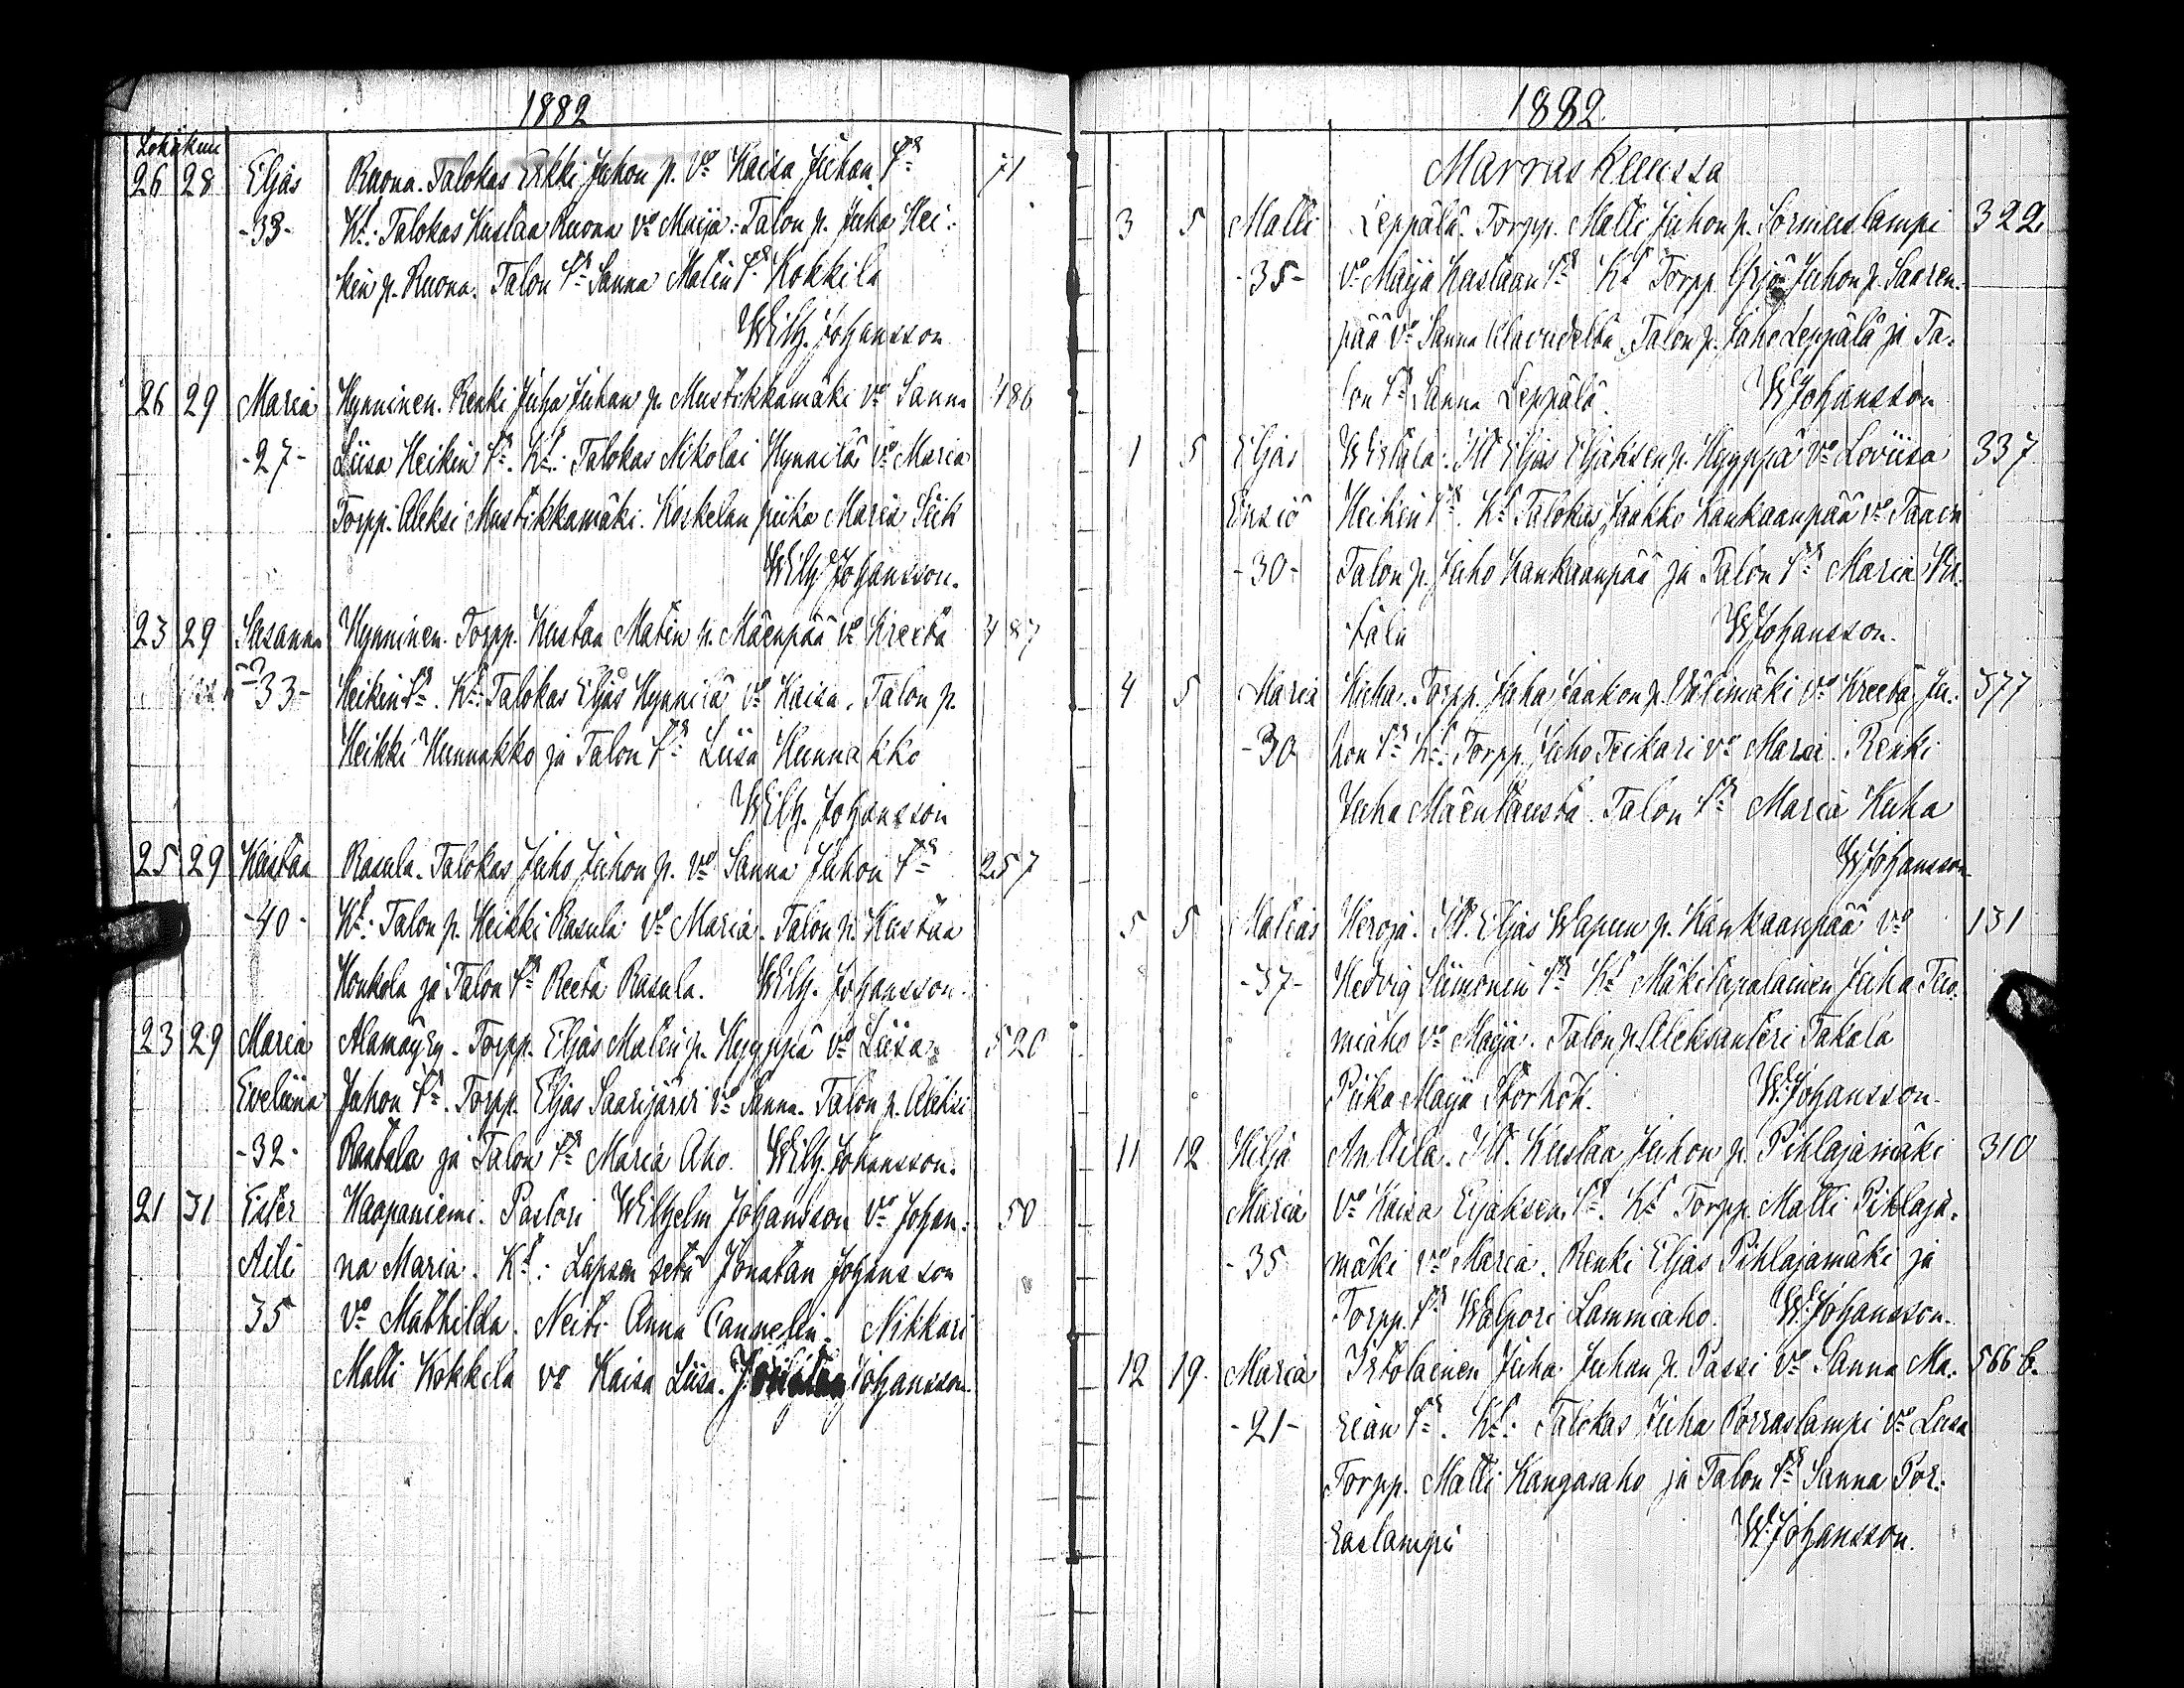 1882
Lokakuu
26 28 Eljas Ruona. Talokas Erkki Juhon p. vo Kaisa Juhan tr 71
-33- Kt: Talokas Kustaa Ruona vo Maija: Talon p. Juha Hei-
kin p. Ruona. Talon tr Sanna Matin tr Kokkila
Wilh. Johansson
26 29 Maria Hynninen. Renki Juha Juhan p. Mustikkamäki vo Sanna 486
-27- Liisa Heikin tr. Kt: Talokas Nikolai Hynnilä vo Maria
Torpp. Aleksi Mustikkamäki. Koskelan piika Maria Siik
Wilh. Johansson.
23 29 Susanna Hynninen. Torpp. Kustaa Matin p. Mäenpää vo Kreeta 487
-33- Heikin tr. Kt: Talokas Eljas Hynnilä vo Kaisa. Talon p.
Heikki Hunnakko ja Talon tr Liisa Hunnakko
Wilh. Johansson
25 29 Kustaa Rasula. Talokas Juho Juhon p. vo Sanna Juhon tr 257
-40- Kt: Talon p. Heikki Rasula vo Maria. Talon p. Kustaa
Honkola ja Talon tr Reeta Rasula. Wilh. Johansson.
23 29 Maria Torpp. Eljas Matin p. Hyyppä vo Liisa 520
Eveliina Juhon tr. Torpp. Eljas Saarijärvi vo Sanna. Talon p. Aleksi
-32- Rantala ja Talon tr Maria Aho. Wilh. Johansson.
21 31 Ester Haapaniemi. Pastori Wilhelm Johansson vo Johan- 50
Aili na Maria. Kt: Lapsen setä Jonatan Johansson
35 vo Mathilda. Neiti Anna Cannelin. Nikkari
Matti Kokkila vo Kaisa Liisa. Johansson.
1882.
Marras Kuussa
3 5 Matti Leppälä. Torpp. Matti Juhon p. Sormuslampi 322
-35- vo Maija Kustaan tr Kt Torpp. Yrjö Juhon p. Saaren-
pää vo Sanna Talon p. Juho Leppälä ja Ta-
lon tr Sanna Leppälä. W Johansson
1 5 Eljas Wirtala. Itl Eljas Eljaksen p. Hyyppä vo Loviisa 337
Ensiö Heikin tr. Kt Talokas Jaakko Kankaanpää vo
-30- Talon p. Juho Kankaanpää ja Talon tr Maria Wir-
tala W Johansson.
4 5 Maria Kuha. Torpp. Juha Jaakon p. Välimäki vo Kreeta Ju- 377
-30 hon tr Kt: Torpp. Juho Teikari vo Maria. Renki
Juha Mäentausta. Talon tr Maria Kuha
W Johansson
5 5 Matias Heroja. Itl. Eljas Wapun p. Kankaanpää vo 131
-37- Hedvig Siimonin tr Kt Mäkitupalainen Juha Tuo-
miaho vo Maija. Talon p. Aleksanteri Takala
Piika Maija Storhöt. W. Johansson.
11 12 Hilja Anttila. Itl. Kustaa Juhon p. Pihlajamäki 310
Maria vo Kaisa Eljaksen tr. Kt Torpp. Matti Pihlaja-
-35 mäki vo Maria. Renki Eljas Pihlajamäki ja
Torpp. tr Walpori Lammiaho. W. Johansson.
12 19. Maria Irtolainen Juha Juhan p. Passi vo Sanna Ma- 566 b.
-21- rian tr. Kt: Talokas Juha Porraslampi vo Liisa
Torpp. Matti Kangasaho ja Talon tr Sanna Por-
raslampi W. Johansson.